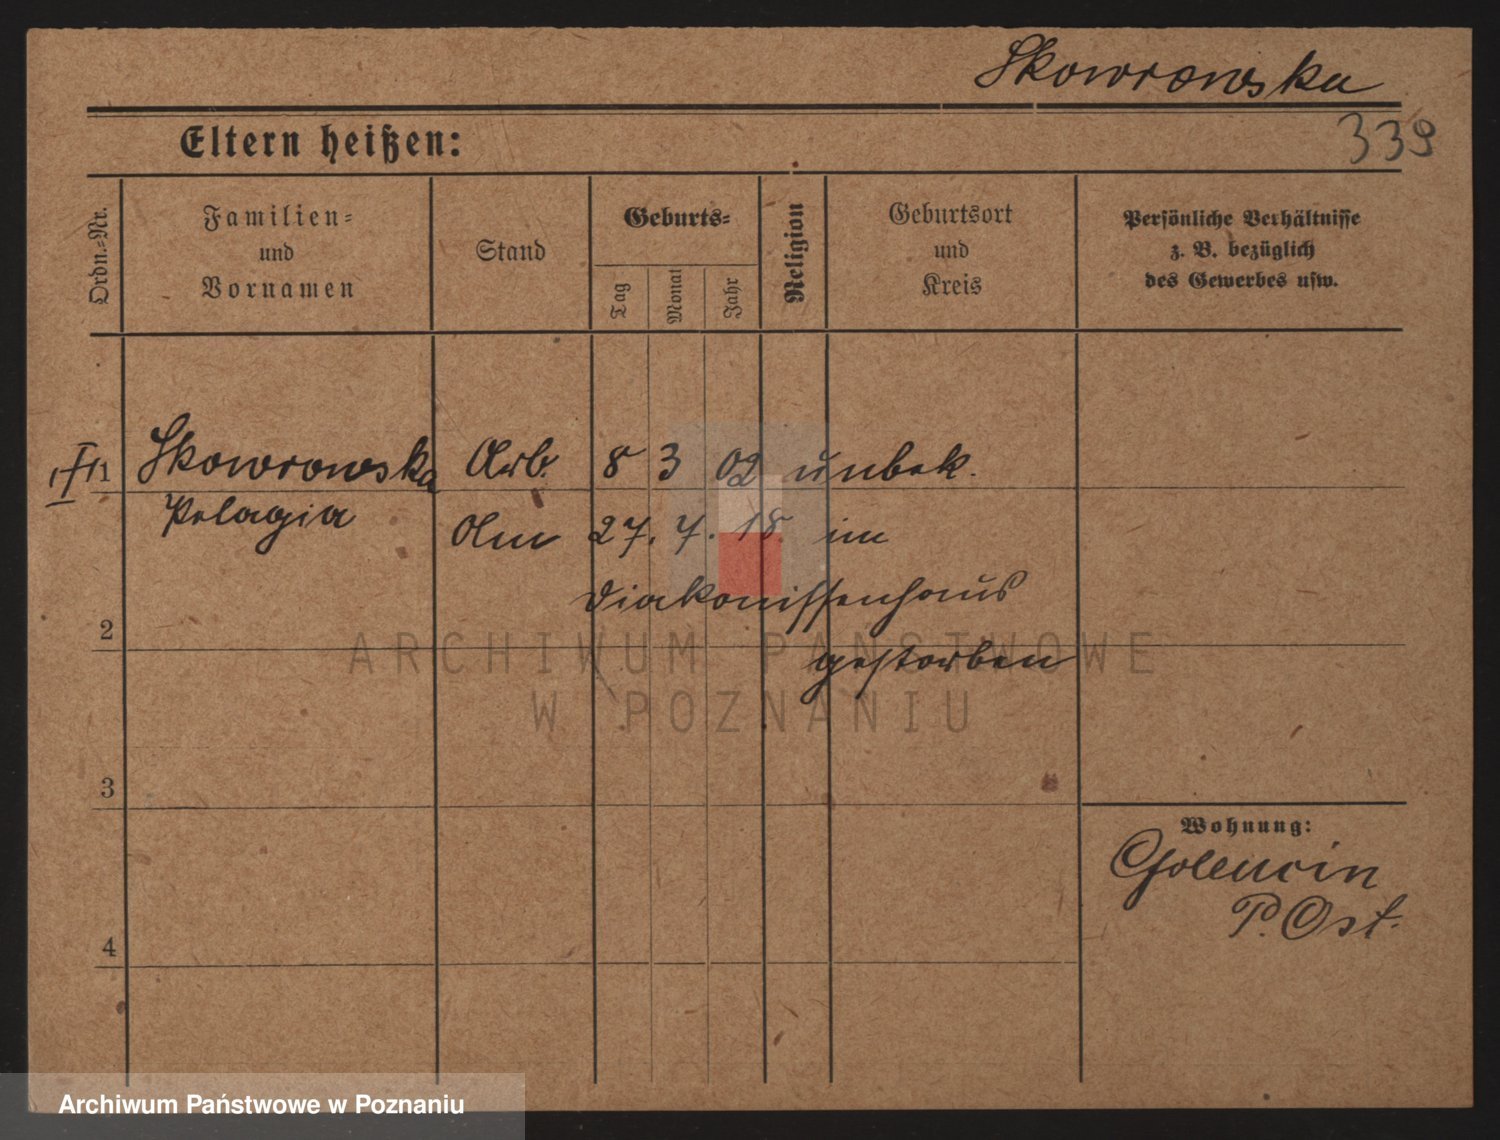 Skowronska
339
Eltern heißen:
Ordn.=Nr.
Familien=
und
Vornamen
Stand
Geburts=
Tag
Monat
Jahr
Religion
Geburtsort
und
Kreis
Persönliche Verhältnisse
z. B. bezüglich
des Gewerbes usw.
1 Skowronska Arb. 8 3 02 unbek.
Pelagia
Am 27. 7. 18. im
Diakonissenhaus
gestorben
2
3
4
Wohnung:
Golencin
P. Ost.
ARCHIWUM PAŃSTWOWE
W POZNANIU
Archiwum Państwowe w Poznaniu